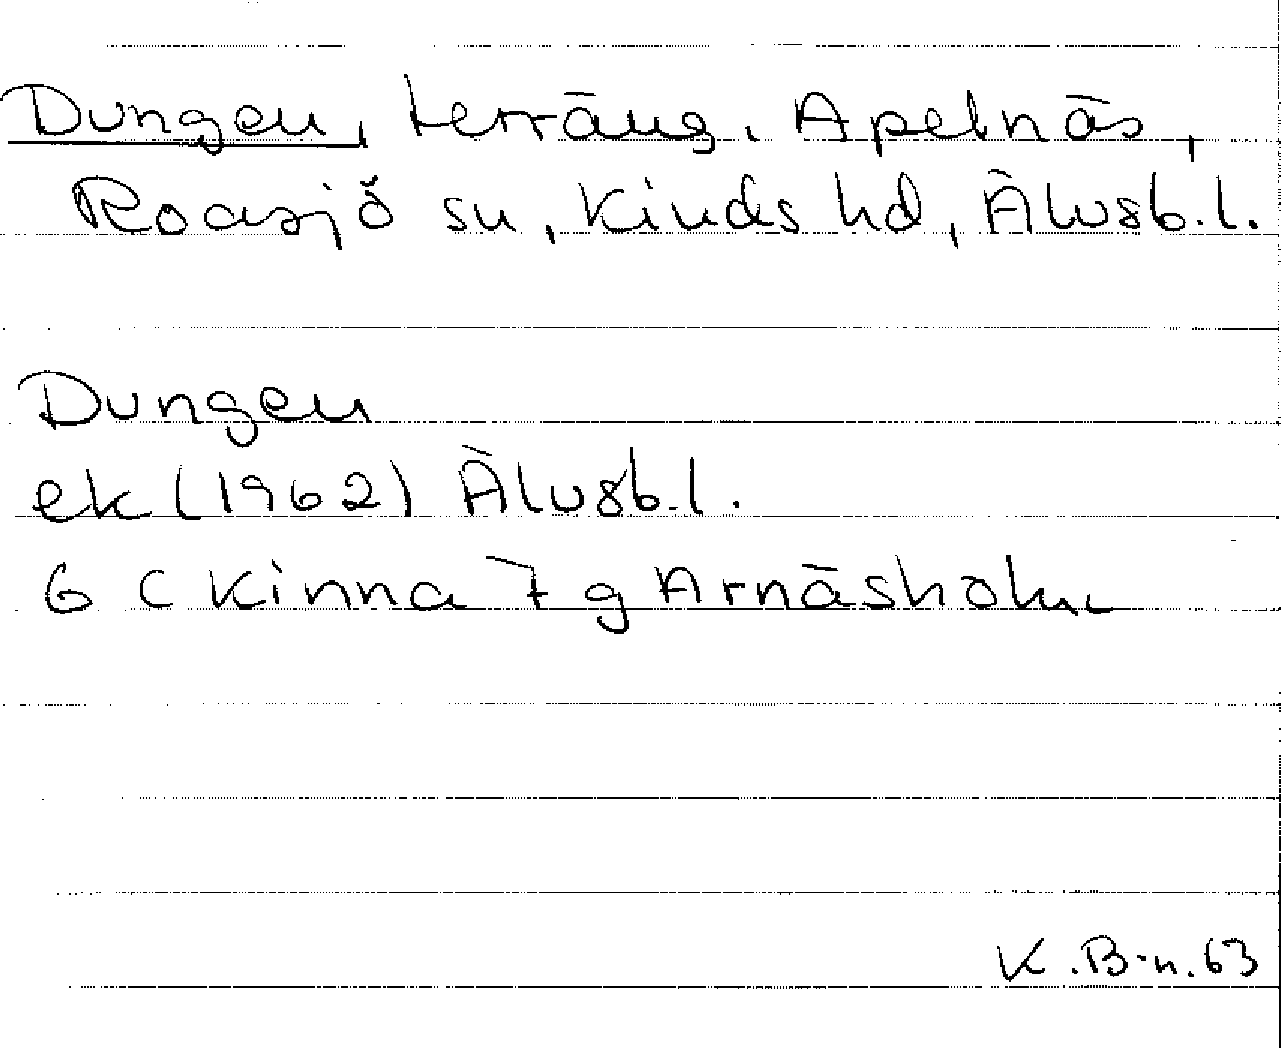 Dungen, terräng. Apelnäs,
Roasjö sn, Kinds hd, Älvsb.l.
Dungen
ek (1962) Älvsb.l.
6 C Kinna 7 g Arnäsholm
K.B-n.63